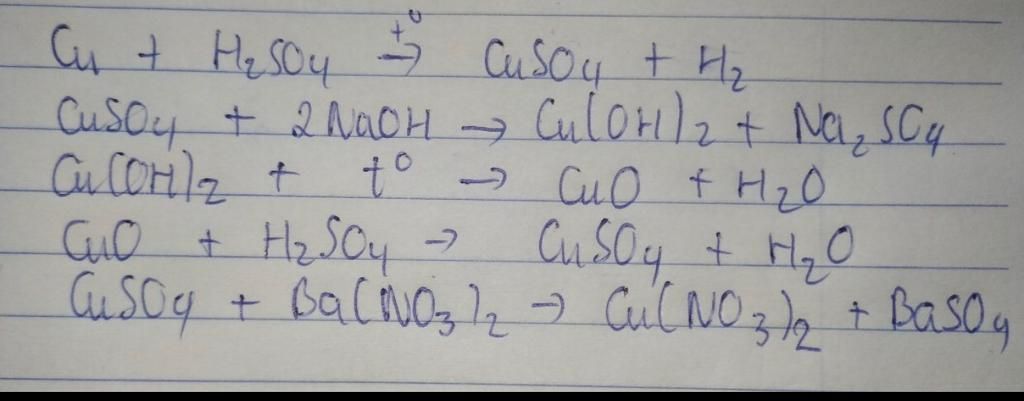 Cu + H₂SO₄ t° → CuSO₄ + H₂
CuSO₄ + 2NaOH → Cu(OH)₂ + Na₂SO₄
Cu(OH)₂ + t° → CuO + H₂O
CuO + H₂SO₄ → CuSO₄ + H₂O
CuSO₄ + Ba(NO₃)₂ → Cu(NO₃)₂ + BaSO₄